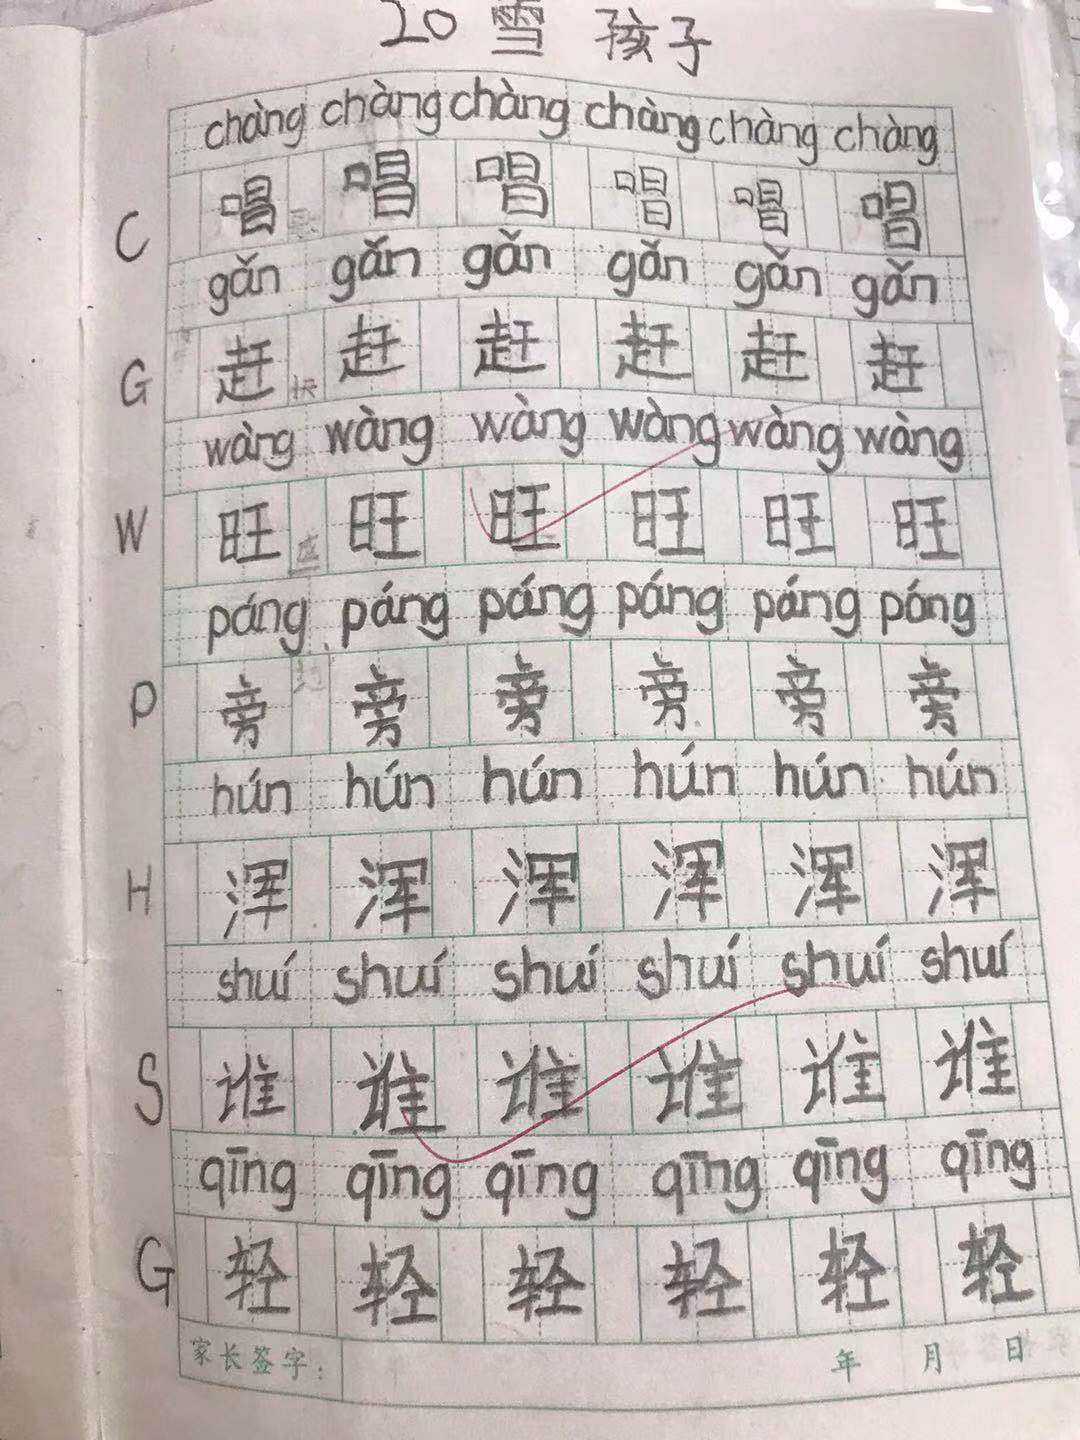 20 雪孩子
chàng chàng chàng chàng chàng chàng
C 唱 唱 唱 唱 唱 唱
gǎn gǎn gǎn gǎn gǎn gǎn
G 赶 赶 赶 赶 赶 赶
wàng wàng wàng wàng wàng wàng
W 旺 旺 旺 旺 旺 旺
páng páng páng páng páng páng
P 旁 旁 旁 旁 旁 旁
hún hún hún hún hún hún
H 浑 浑 浑 浑 浑 浑
shuí shuí shuí shuí shuí shuí
S 谁 谁 谁 谁 谁 谁
qīng qīng qīng qīng qīng qīng
G 轻 轻 轻 轻 轻 轻
家长签字： 年 月 日